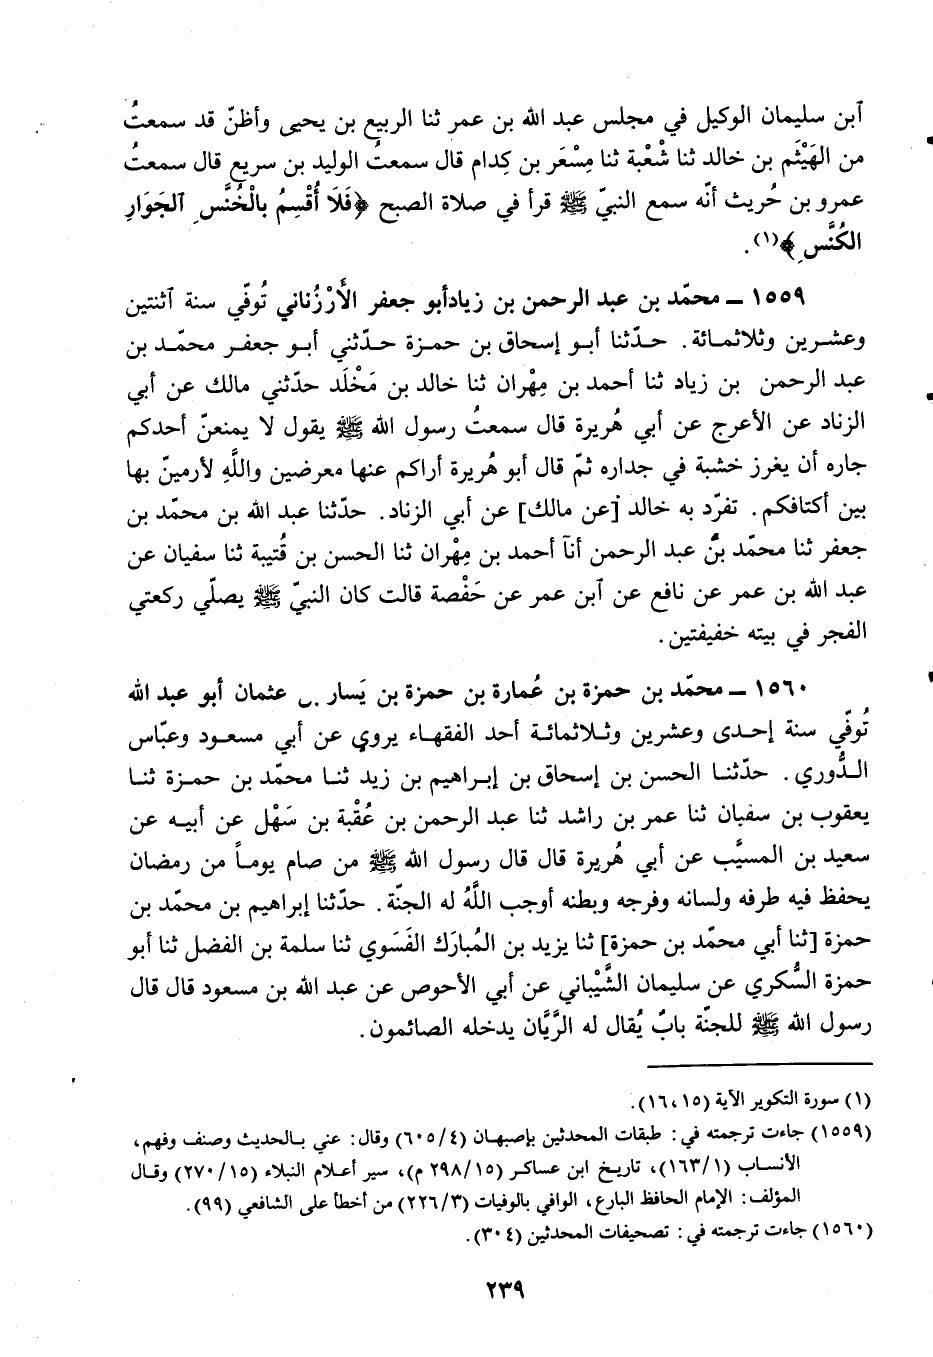 ٱبن سليمان الوكيل في مجلس عبد الله بن عمر ثنا الربيع بن يحيى وأظنّ قد سمعتُ
من الهَيْثَم بن خالد ثنا شُعْبة ثنا مِسْعَر بن كِدام قال سمعتُ الوليد بن سريع قال سمعتُ
عمرو بن حُريث أنّه سمع النبيّ ﷺ قرأ في صلاة الصبح ﴿فَلَا أُقْسِمُ بالْخُنَّسِ ٱلجَوَارِ
الكُنَّسِ﴾(١).
١٥٥٩ ـ محمّد بن عبد الرحمن بن زيادأبو جعفر الأَرْزُناني تُوفّي سنة ٱثنتين
وعشرين وثلاثمائة. حدّثنا أبو إسحاق بن حمزة حدّثني أبو جعفر محمّد بن
عبد الرحمن بن زياد ثنا أحمد بن مِهْران ثنا خالد بن مَخْلَد حدّثني مالك عن أبي
الزناد عن الأعرج عن أبي هُريرة قال سمعتُ رسول الله ﷺ يقول لا يمنعنّ أحدكم
جاره أن يغرز خشبة في جداره ثمّ قال أبو هُريرة أراكم عنها معرضين واللَّهِ لأرمينّ بها
بين أكتافكم. تفرّد به خالد [عن مالك] عن أبي الزناد. حدّثنا عبد الله بن محمّد بن
جعفر ثنا محمّد بن عبد الرحمن أنآ أحمد بن مِهْران ثنا الحسن بن قُتيبة ثنا سفيان عن
عبد الله بن عمر عن نافع عن ٱبن عمر عن حَفْصة قالت كان النبيّ ﷺ يصلّي ركعتي
الفجر في بيته خفيفتين.
١٥٦٠ ـ محمّد بن حمزة بن عُمارة بن حمزة بن يَسار بن عثمان أبو عبد الله
تُوفّي سنة إحدى وعشرين وثلاثمائة أحد الفقهاء يروي عن أبي مسعود وعبّاس
الدُّوري. حدّثنا الحسن بن إسحاق بن إبراهيم بن زيد ثنا محمّد بن حمزة ثنا
يعقوب بن سفيان ثنا عمر بن راشد ثنا عبد الرحمن بن عُقْبة بن سَهْل عن أبيه عن
سعيد بن المسيَّب عن أبي هُريرة قال قال رسول الله ﷺ من صام يوماً من رمضان
يحفظ فيه طرفه ولسانه وفرجه وبطنه أوجب اللَّهُ له الجنّة. حدّثنا إبراهيم بن محمّد بن
حمزة [ثنا أبي محمّد بن حمزة] ثنا يزيد بن المُبارَك الفَسَوي ثنا سلمة بن الفضل ثنا أبو
حمزة السُّكري عن سليمان الشَّيْباني عن أبي الأحوص عن عبد الله بن مسعود قال قال
رسول الله ﷺ للجنّة بابٌ يُقال له الرَّيَّان يدخله الصائمون.
(١) سورة التكوير الآية (١٥، ١٦).
(١٥٥٩) جاءت ترجمته في: طبقات المحدثين بإصبهان (٤/ ٦٠٥) وقال: عني بالحديث وصنف وفهم،
الأنساب (١/ ١٦٣)، تاريخ ابن عساكر (١٥/ ٢٩٨ م)، سير أعلام النبلاء (١٥/ ٢٧٠) وقال
المؤلف: الإمام الحافظ البارع، الوافي بالوفيات (٣/ ٢٢٦) من أخطأ على الشافعي (٩٩).
(١٥٦٠) جاءت ترجمته في: تصحيفات المحدثين (٣٠٤).
٢٣٩